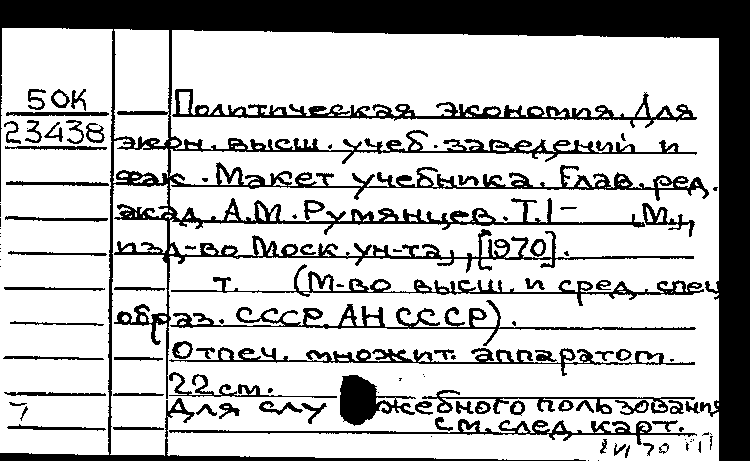 50К
23438
Политическая экономия. Для
экон. высш. учеб. заведений и
фак. Макет учебника. Глав. ред.
акад. А.М. Румянцев. Т.1- [М.],
изд-во Моск. ун-та, [1970].
т. (М-во высш. и сред. спец
образ. СССР. АН СССР).
Отпеч. множит. аппаратом.
22 см.
Для служебного пользования
см. след. карт.